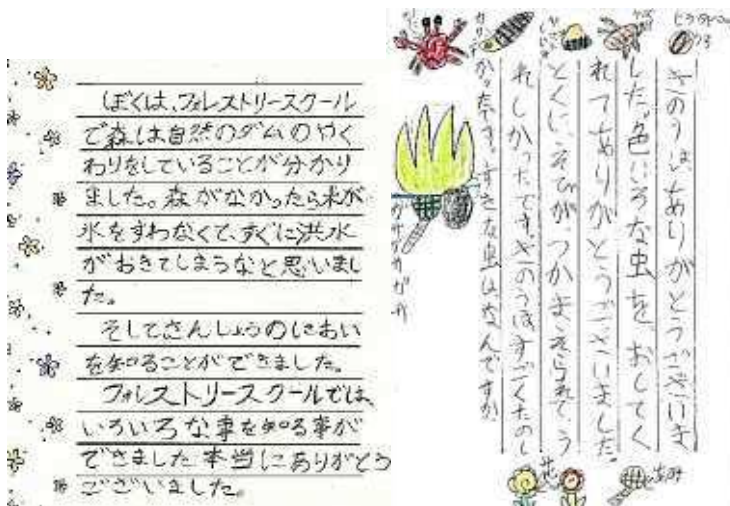 ぼくは、フォレストリースクール
で森は自然のダムのやく
わりをしていることが分かり
ました。森がなかったら木が
水をすわなくて、すぐに洪水
がおきてしまうなと思いまし
た。
そしてさんしょうのにおい
を知ることができました。
フォレストリースクールでは、
いろいろな事を知る事が
できました 本当にありがとう
ございました。
きのうは、ありがとうございま
した。色いろな虫を、おしてく
れてありがとうございました。
とくに、そびが、つかまえられてう
れしかったです。きのうはすごくたのし
かったです。すきな虫は、なんですか。
かに
花
あみ